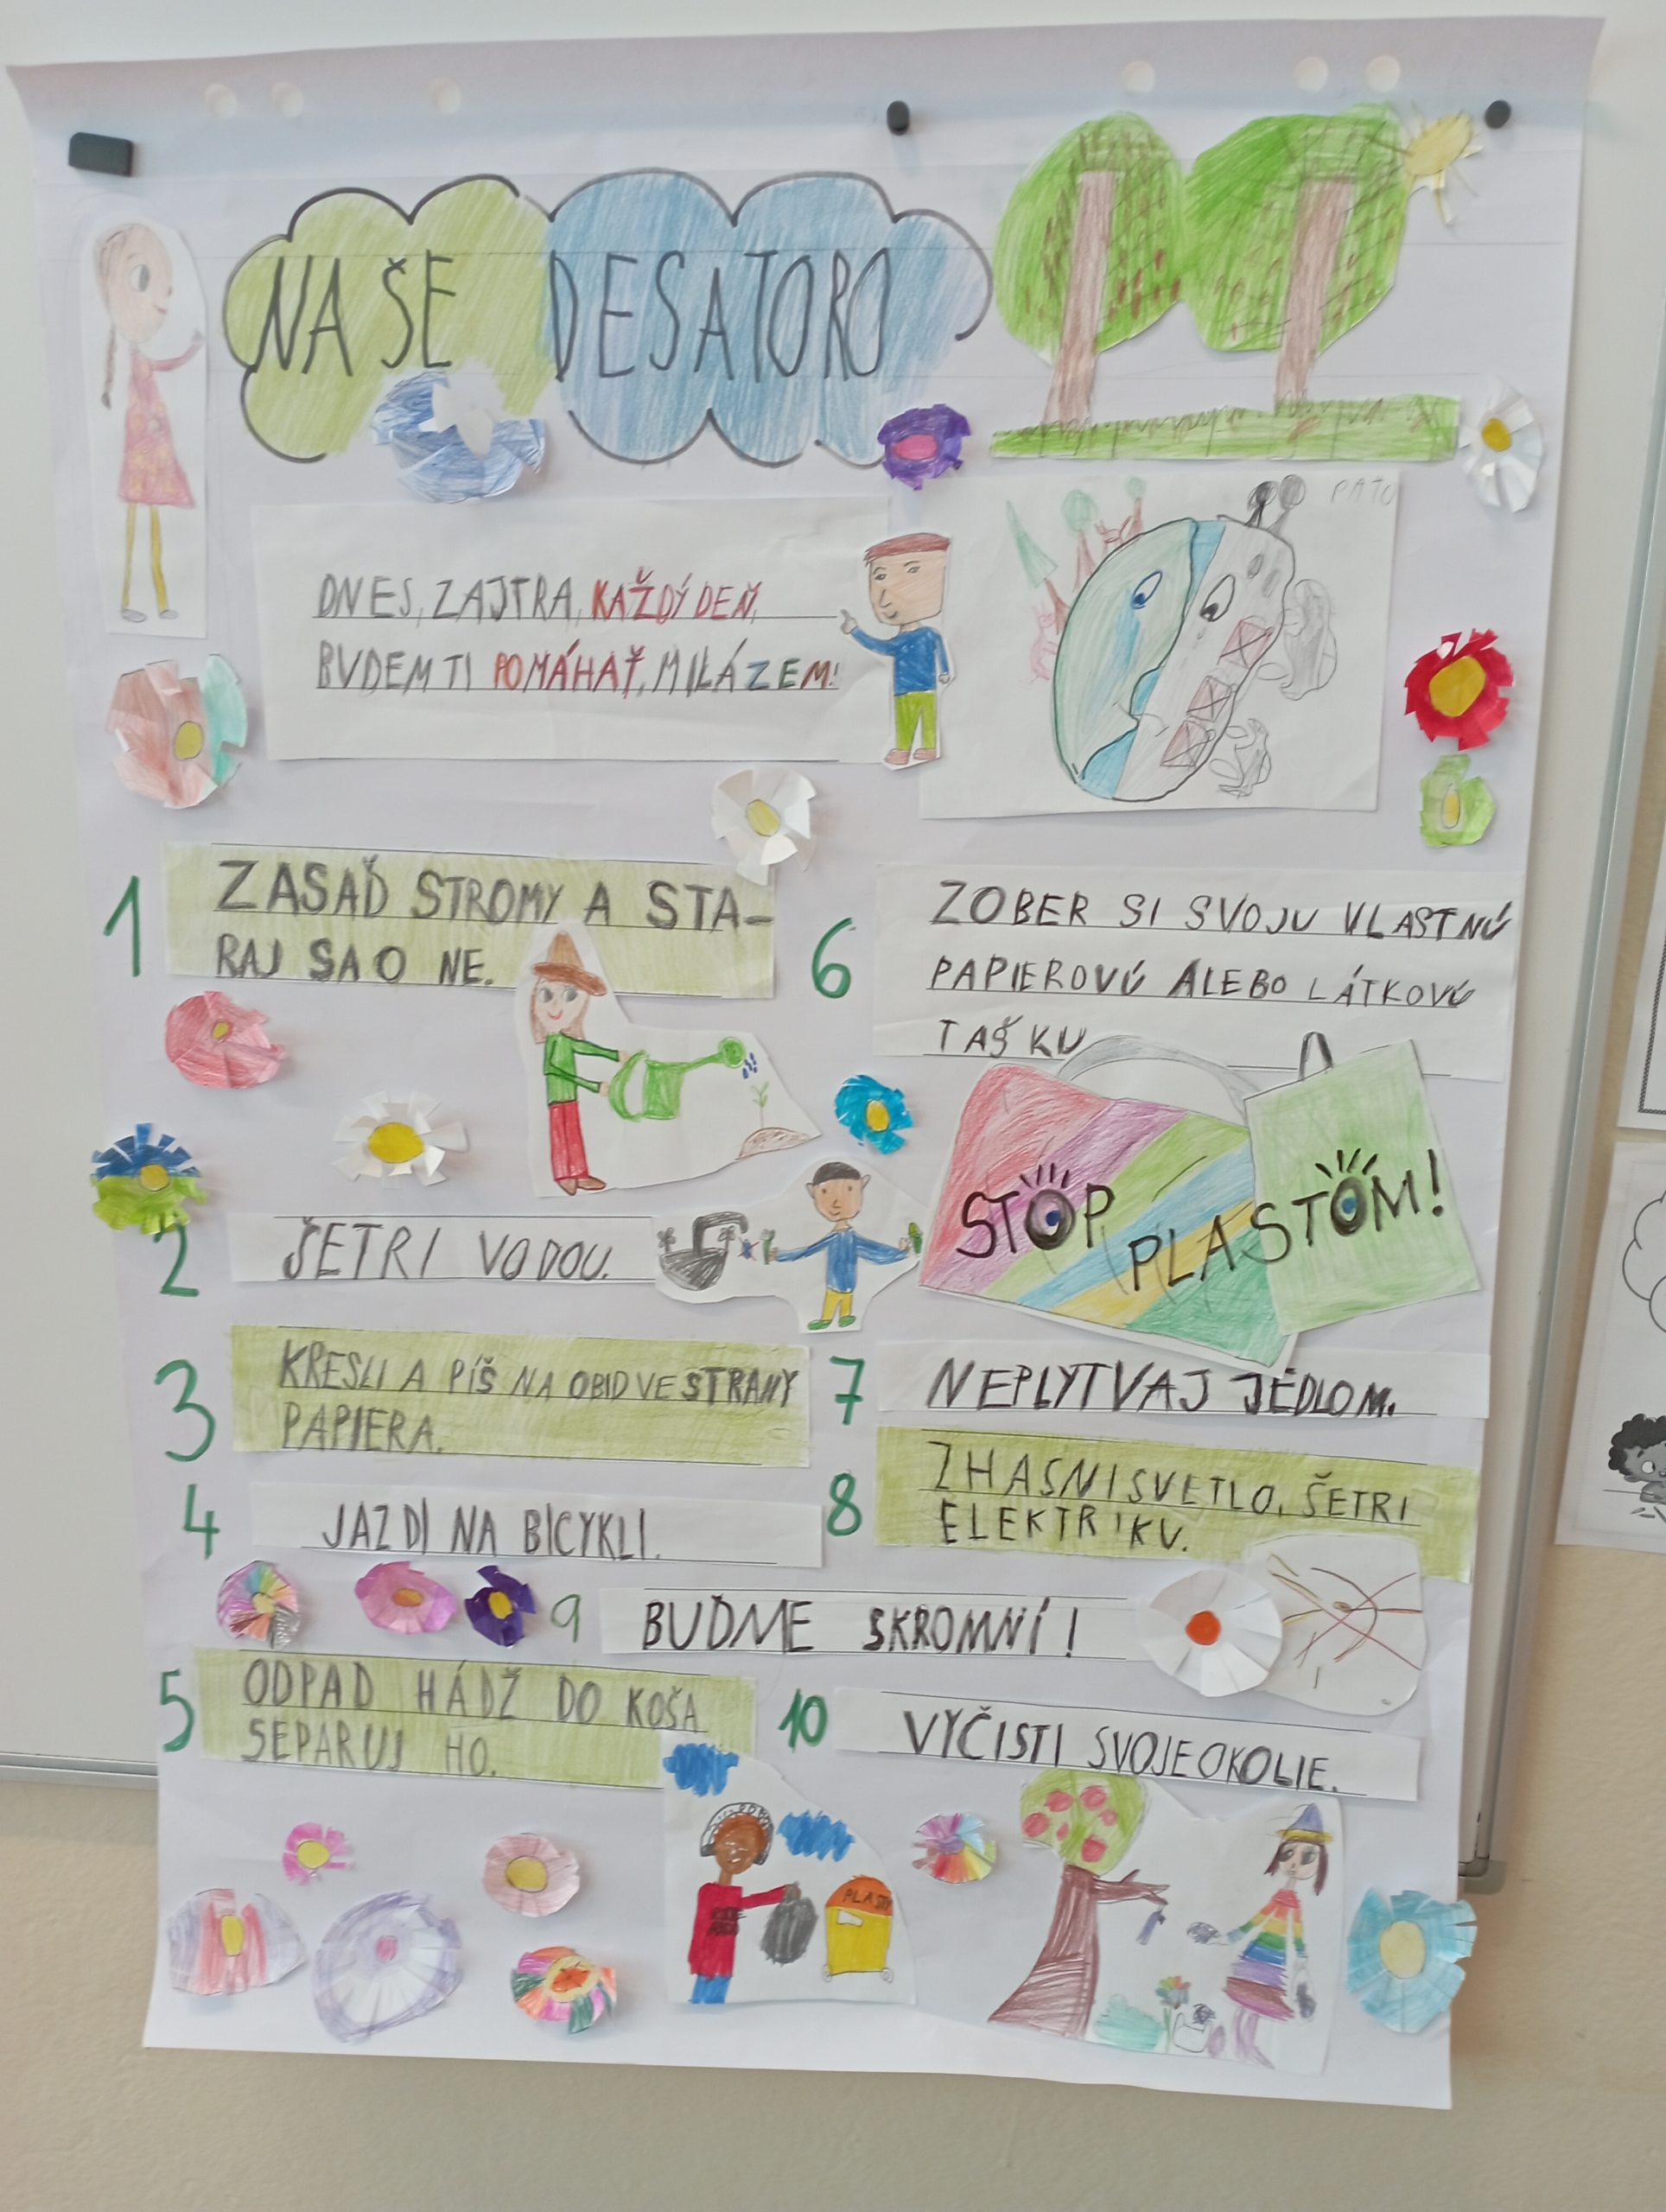 NAŠE DESATORO
PAŤO
DNES, ZAJTRA, KAŽDÝ DEŇ,
BUDEM TI POMÁHAŤ, MILÁ ZEM!
1 ZASAĎ STROMY A STA-
RAJ SA O NE.
2 ŠETRI VODOU.
3 KRESLI A PÍŠ NA OBIDVE STRANY
PAPIERA.
4 JAZDI NA BICYKLI.
5 ODPAD HÁDŽ DO KOŠA
SEPARUJ HO.
6 ZOBER SI SVOJU VLASTNÚ
PAPIEROVÚ ALEBO LÁTKOVÚ
TAŠKU
STOP
PLASTOM!
7 NEPLYTVAJ JEDLOM.
8 ZHASNI SVETLO, ŠETRI
ELEKTRIKU.
9 BUĎME SKROMNÍ!
10 VYČISTI SVOJE OKOLIE.
PLASTY